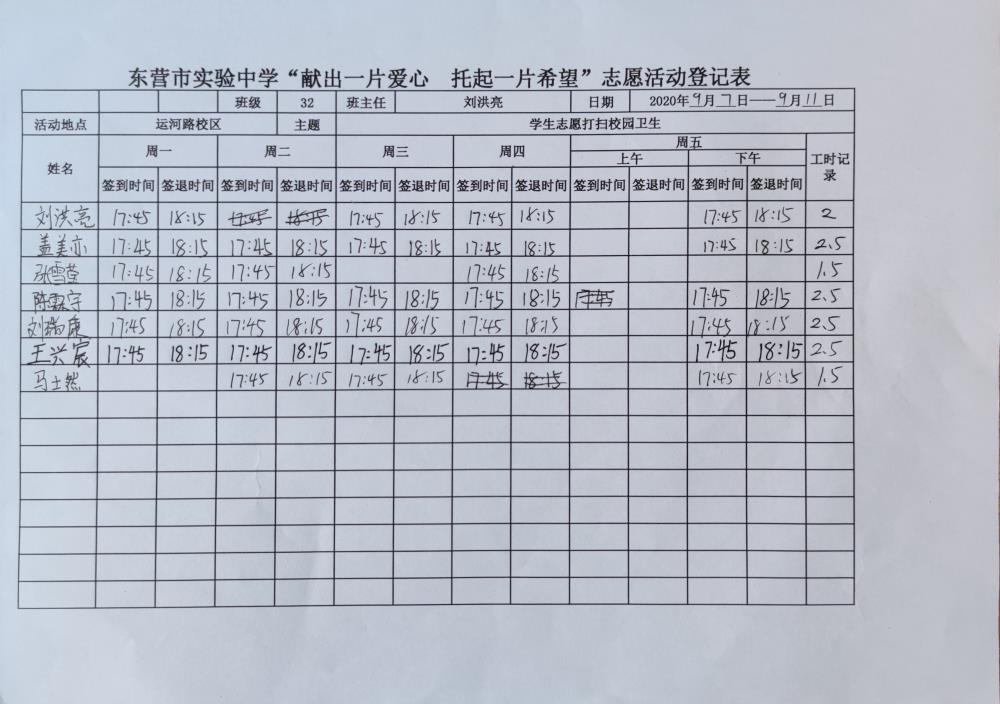 东营市实验中学“献出一片爱心 托起一片希望”志愿活动登记表
班级 32 班主任 刘洪亮 日期 2020年9月7日——9月11日
活动地点 运河路校区 主题 学生志愿打扫校园卫生
姓名 周一 周二 周三 周四 周五 工时记录
上午 下午
签到时间 签退时间 签到时间 签退时间 签到时间 签退时间 签到时间 签退时间 签到时间 签退时间 签到时间 签退时间
刘洪亮 17:45 18:15 17:45 18:15 17:45 18:15 17:45 18:15 17:45 18:15 2
盖美亦 17:45 18:15 17:45 18:15 17:45 18:15 17:45 18:15 17:45 18:15 2.5
张雪莹 17:45 18:15 17:45 18:15 17:45 18:15 1.5
陈霖宇 17:45 18:15 17:45 18:15 17:45 18:15 17:45 18:15 17:45 17:45 18:15 2.5
刘瑞康 17:45 18:15 17:45 18:15 17:45 18:15 17:45 18:15 17:45 18:15 2.5
王兴宸 17:45 18:15 17:45 18:15 17:45 18:15 17:45 18:15 17:45 18:15 2.5
马士然 17:45 18:15 17:45 18:15 17:45 18:15 17:45 18:15 1.5